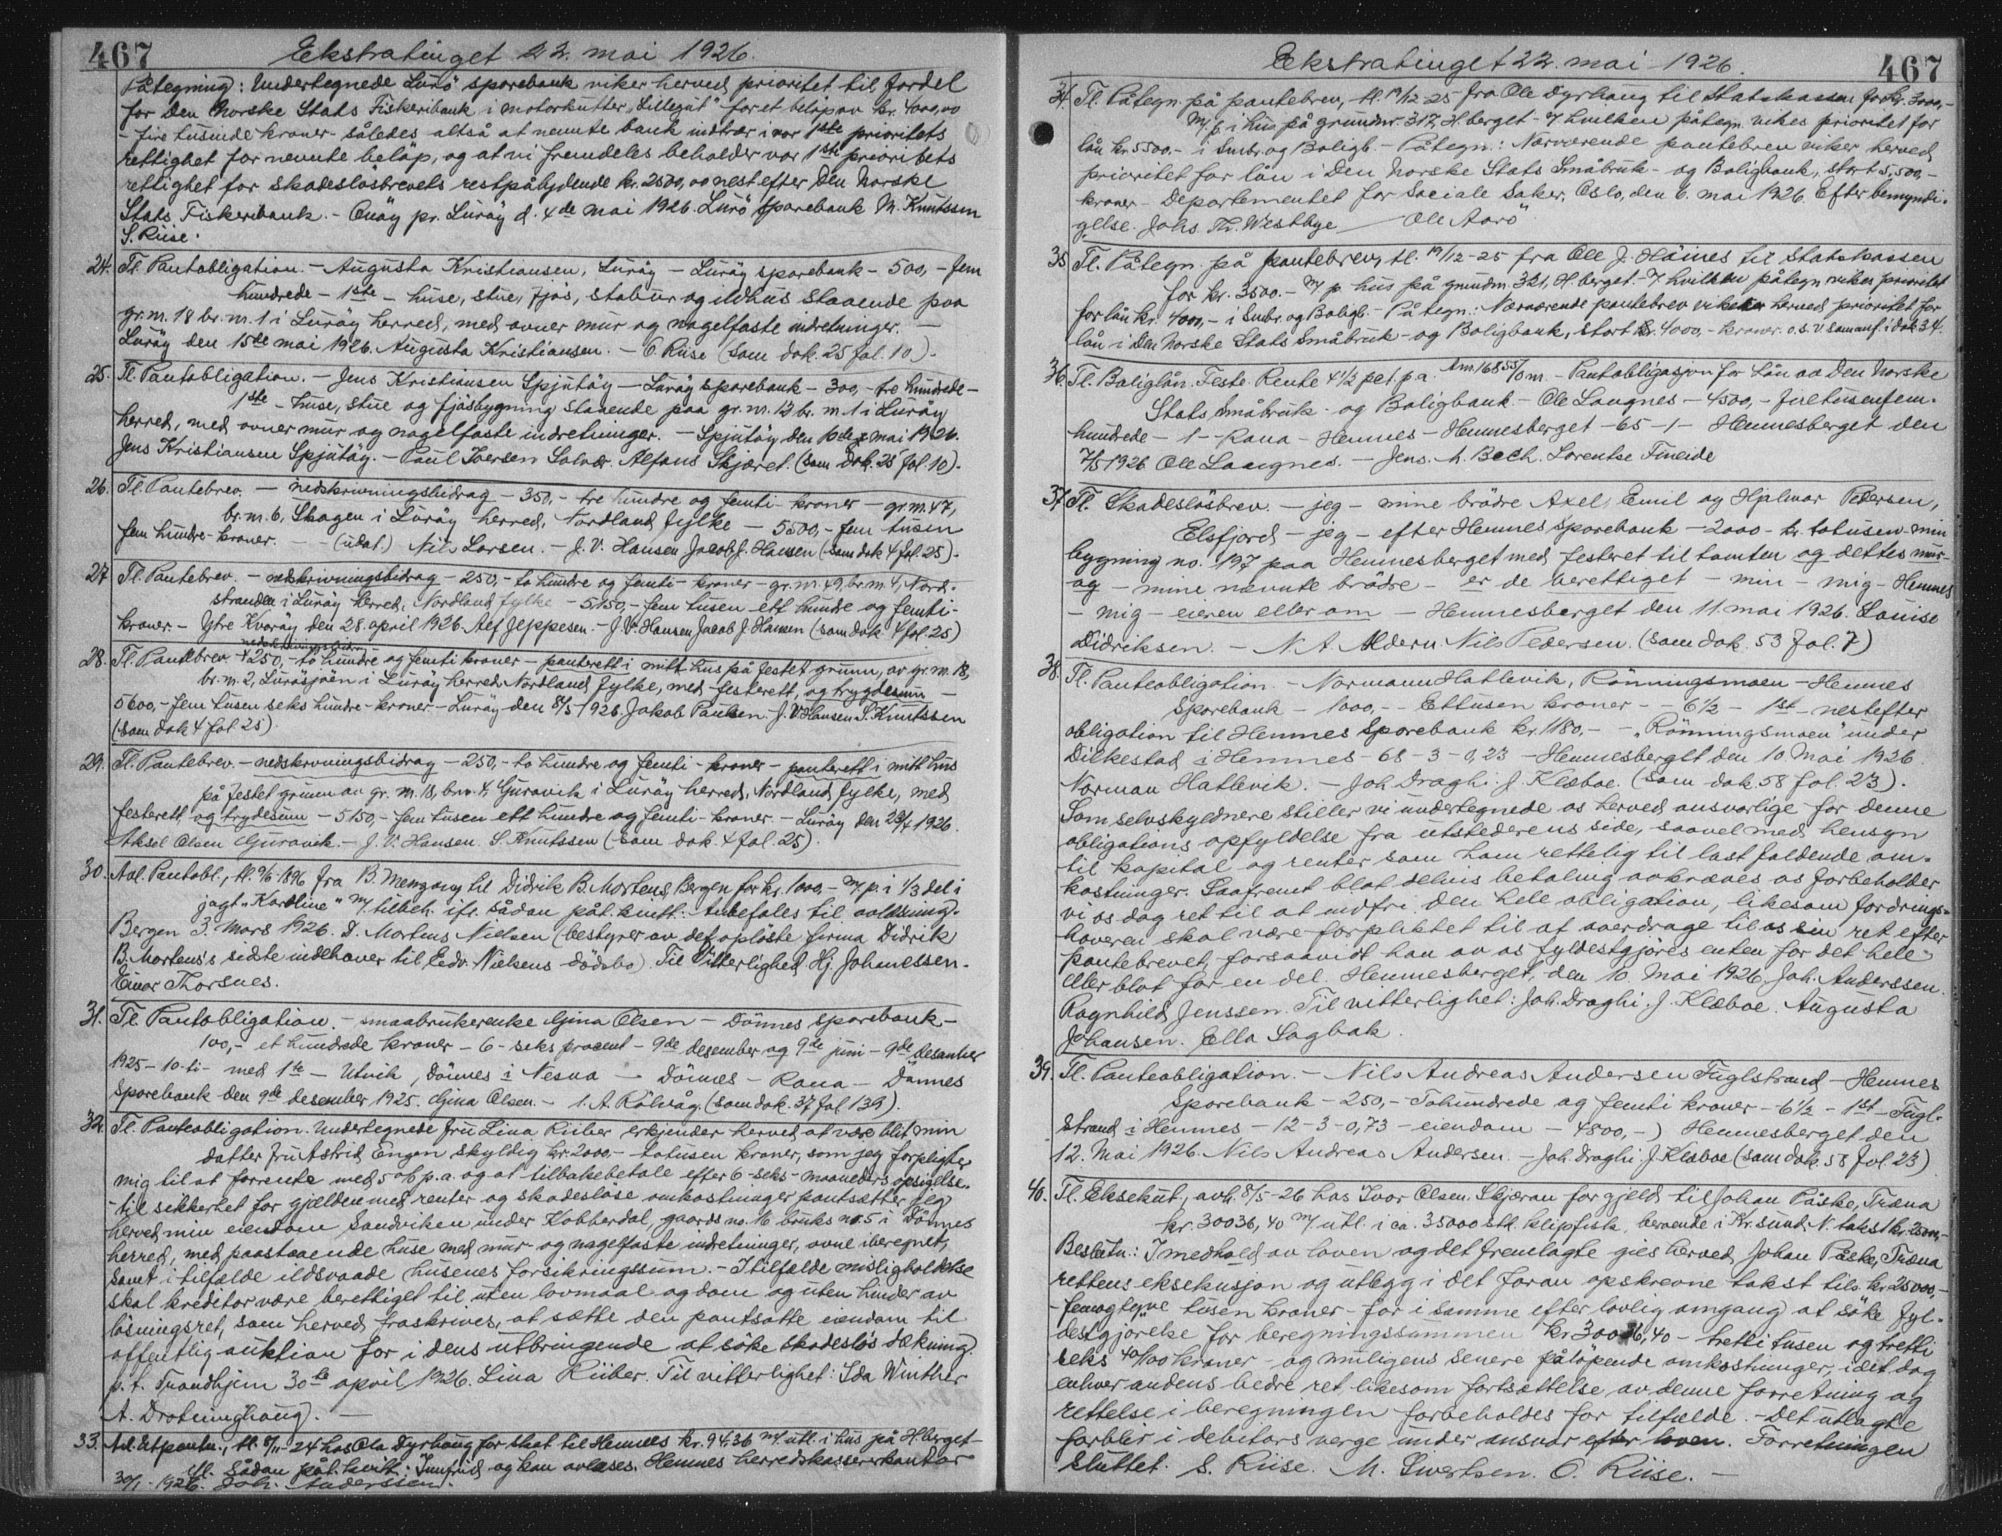 467
Ekstratinget 22. mai 1926.
Påtegning: Undertegnede Lurö sparebank viker herved prioritet til fordel
for Den Norske Stats Fiskeribank i motorkutter "Lillegut" for et belöp av kr. 4000,00
- fire tusinde kroner - således altså at nevnte bank indtrær i vor 1ste prioritets
rettighet for nevnte belöp, og at vi fremdeles beholder vor 1ste prioritets
rettighet for skadeslösbrevets restpålydende kr. 2500,00 nest efter Den Norske
Stats Fiskeribank. - Onöy pr. Luröy d. 4de mai 1926. Lurö Sparebank M. Knutssen
S. Riise.
24. Tl. Pantobligation. - Augusta Kristiansen, Luröy - Luröy sparebank - 500,- fem
hundrede - 1ste - huse, stue, fjös, stabur og ildhus staaende paa
gr.nr. 18 br.nr. 1 i Luröy herred, med ovner mur og nagelfaste indretninger. -
Luröy den 15de mai 1926. Augusta Kristiansen. - O. Riise (som dok. 25 fol. 10).
25. Tl. Pantobligation. - Jens Kristiansen Spjutöy - Luröy sparebank - 300,- tre hundrede -
1ste - huse, stue og fjösbygning staaende paa gr.nr. 12 br.nr. 1 i Luröy
herred, med ovner mur og nagelfaste indretninger. - Spjutöy den mai 1926.
Jens Kristiansen Spjutöy. - Paul Iversen Solvær. Alfons Skjæret (som dok. 25 fol. 10).
26. Tl. Pantebrev. - nedskrivningsbidrag - 350,- tre hundre og femti kroner - gr.nr. 47,
br.nr. 6, Skogen i Luröy herred, Nordland fylke - 5500,- fem tusen
fem hundre kroner. - - (udat.) Nils Larsen. - J. V. Hansen Jacob J. Hansen (som dok 4 fol. 25).
27 Tl. Pantebrev. - nedskrivningsbidrag - 250,- to hundre og femti kroner - gr.nr. 49 br.nr. 4, Nord-
stranden i Luröy herred, Nordland fylke - 5150,- fem tusen ett hundre og femti-
kroner. - Ytre Kvaröy den 28. april 1926. Alf Jeppesen. - J. V. Hansen Jacob J. Hansen (som dok. 4 fol 25)
nedskrivningsbidrag
28. Tl. Pantebrev - 250,- to hundre og femti kroner - panterett i mitt hus på festet grunn, av gr.nr. 18,
br.nr. 2, Luröysjöen i Luröy herred Nordland fylke, med festerett, og trygdesum -
5600,- fem tusen seks hundre - kroner - Luröy den 8/5 1926 Jakob Paulsen - J. V. Hansen S. Knutssen
(som dok 4 fol 25).
29. Tl. Pantebrev. - nedskrivningsbidrag - 250,- to hundre og femti - kroner - panterett i mitt hus
på festet grunn av gr.nr. 18, br.nr. 4, Gurövik i Luröy herred, Nordland fylke, med
festerett og trydesum - 5150,- fem tusen ett hundre og femti - kroner - Luröy den 29/4 1926.
Aksel Olsen Gurövik. - J. V. Hansen. S. Knutssen (som dok. 4 fol. 25).
30. Avl. Pantobl., tl. 9/6-1896 fra B. Menzony til Didrik B. Mortens Bergen for kr. 1000,- m/ p. i 1/3 del i
jagt "Karoline" m/ tilbeh. ifr. sådan påt. kvitt: Anbefales til avlæsning.
Bergen 3. Mars 1926. D. Mortens Nielsen (bestyrer av det oplöste firma Didrik
B. Mortens's sidste indehaver til Edv. Nielsens dödsbo). Til Vitterlighed Hj. Johanessen.
Einar Thorsnes.
31. Tl. Pantobligation. - smaabrukerenke Gjina Olsen - Dönnes sparebank -
100,- et hundrede kroner - 6 - seks procent - 9de desember og 9de juni - 9de desember
1925 - 10-ti - med 1ste - Utvik, Dönnes i Nesna - Dönnes - Rana - Dönnes
Sparebank den 9de desember 1925. Gjina Olsen. - I. A. Rölvåg. (som dok. 37 fol 139).
32. Tl. Panteobligation. Undertegnede fru Lina Riiber erkjender herved at være blit min
datter fru Astrid Engen skyldig kr. 2000,- totusen kroner, som jeg forpligter
mig til at forrente med 5 % p.a. og at tilbakebetale efter 6 - seks - maaneders opsigelse.
- til sikkerhet for gjælden med renter og skadeslöse omkostninger pantsætter jeg
herved min eiendom Sandviken under Kobberdal, gaards no. 16 bruks nr. 5 i Dönnes
herred, med paastaaende huse med mur- og nagelfaste indretninger, ovne iberegnet,
samt i tilfælde ildsvaade husenes forsikringssum. - I tilfælde misligholdelse
skal kreditor være berettiget til uten lovmaal og dom og uten hinder av
lösningsret, som herved fraskrives, at sætte den pantsatte eiendom til
offentlig auktion for i dens utbringende at söke skadeslös dækning.
p.t. Trondhjem 30te april 1926. Lina Riiber. Til vitterlighet: Ida Winther
A. Drotninghaug. -
33. Avl. Utpantn., tl. 8/11-24 hos Ole Dyrhaug for skat til Hemnes kr. 94.36 m/ utl. i hus på H.berget -
ifl. sådan påt. kvitt: Innfrid og kan avlæses. Hemnes herredskasserkontor
30/1 - 1926. Joh. Anderssen.
Ekstratinget 22. mai 1926.
467
34. Tl. Påtegn. på pantebrev, tl. 19/12-25 fra Ole Dyrhaug til Statskassen for kr. 3000,-
m/ p. i hus på grundnr. 317, H.berget - i hvilken påtegn. vikes prioritet for
lån kr. 5500,- i Småbr. og Boligb. - Påtegn.: Nærværende pantebrev viker herved
prioritet for lån i Den Norske Stats Småbruk- og Boligbank, stort 5,500,-
kroner - Departementet for Sociale Saker, Oslo, den 6. mai 1926. Efter bemyndi-
gelse. Johs. Th. Westbye Ole Aarö
35 Tl. Påtegn. på pantebrev, tl. 19/12-25 fra Ole J. Höines til Statskassen
for kr. 3500.- m/ p. hus på grundnr. 321, H.berget - i hvilken påtegn viker prioritet
for lån kr. 4000,- i Småbr. og Boligb. - Påtegn.: Nærværende pantebrev viker herved prioritet for
lån i Den Norske Stats Småbruk- og Boligbank, stort kr. 4000,- kroner. o.s.v. som anf. i dok 34.
36. Tl. Boliglån. Faste. Rente 4 1/2 pct. p.a. - Pantobligasjon for Lån av Den Norske
Stats Småbruk- og Boligbank - Ole Laugnes - 4500,- firetusenfem-
hundrede - 1 - Rana - Hemnes - Hemnesberget - 65 - 1 - Hemnesberget den
7/5 1926 Ole Laugnes. - Jens. A. Bech. Lorentse Fineide
37. Tl. Skadeslösbrev. - jeg - mine brödre Axel, Emil og Hjalmar Pedersen,
Elsfjord - jeg - efter Hemnes sparebank - 2000 - kr. totusen - min
bygning no. 197 paa Hemnesberget med festeret til tomten og dettes mur-
- og - mine nævnte brödre - er de berettiget - min - mig - Hemnes
- mig - eieren eller om - Hemnesberget den 11. mai 1926. Louise
Didriksen. - N. A. Meldern Nils Pedersen. (som dok. 53 fol. 7)
38. Tl. Panteobligation. - Normann Hatlevik, Rönningsmoen - Hemnes
Sparebank - 1000,- - Ettusen kroner - - 6 1/2 - 1st - nestefter
obligation til Hemnes Sparebank kr. 1180,- - "Rönningsmoen" under
Dilkestad i Hemnes - 68 - 3 - 0,23 - Hemnesberget den 10 Mai 1926.
Norman Hatlevik. - Joh Draghi. J. Klæboe. (som dok 58 fol. 23).
Som selvskyldnere stiller vi undertegnede os herved ansvarlige for denne
obligations opfyldelse fra utstederens side, saavel med hensyn
til kapital og renter som ham rettelig til last faldende om-
kostninger. Saafremt blot delvis betaling avkræves os forbeholder
vi os dog ret til at indfri den hele obligation, likesom fordrings-
haveren skal være forpliktet til at overdrage til os sin ret efter
pantebrevet, forsaavidt han av os fyldestgjöres enten for det hele
eller blot for en del. Hemnesberget, den 10 Mai 1926. Joh. Anderssen.
Ragnhild Jenssen. Til vitterlighet: Joh. Draghi. J. Klæboe. Augusta
Johansen. Ella Sagbak.
39. Tl. Panteobligation. - Nils Andreas Andersen Fuglstrand - Hemnes
Sparebank - 250,- Tohundrede og femti kroner - 6 1/2 - 1st - Fugl-
strand i Hemnes - 12 - 3 - 0,73 - eiendom - 4800,-) Hemnesberget den
12. Mai 1926. Nils Andreas Andersen. - Joh. Draghi. J. Klæboe (som dok. 58 fol 23)
40. Tl. Eksekut., avh. 8/5-26 hos Ivar Olsen Skjæran for gjeld til Johan Påske, Træna
kr. 30036,40 m/ utl. i ca. 35000 stk. klipfisk beroende i Kr.sund N. takst kr. 25000,-
Beslutn.: I medhold av loven og det fremlagte gies herved Johan Påske, Træna
rettens eksekusjon og utlegg i det foran opskrevne takst tils. kr. 25000,-
- femogtyve tusen kroner - for i samme efter lovlig omgang at söke fyl-
destgjörelse for beregningssummen kr 30036,40 - tretti tusen og tretti
seks 40/100 kroner - og muligens senere påløpende omkostninger, i det dog
enhver andens bedre ret, likesom fortsættelse av denne forretning og
rettelse i beregningen forbeholdes for tilfælde. - Det utlagte
forblir i debitors verge under ansvar efter loven. Forretningen
sluttet. S. Riise. M. Sivertsen. O. Riise. -